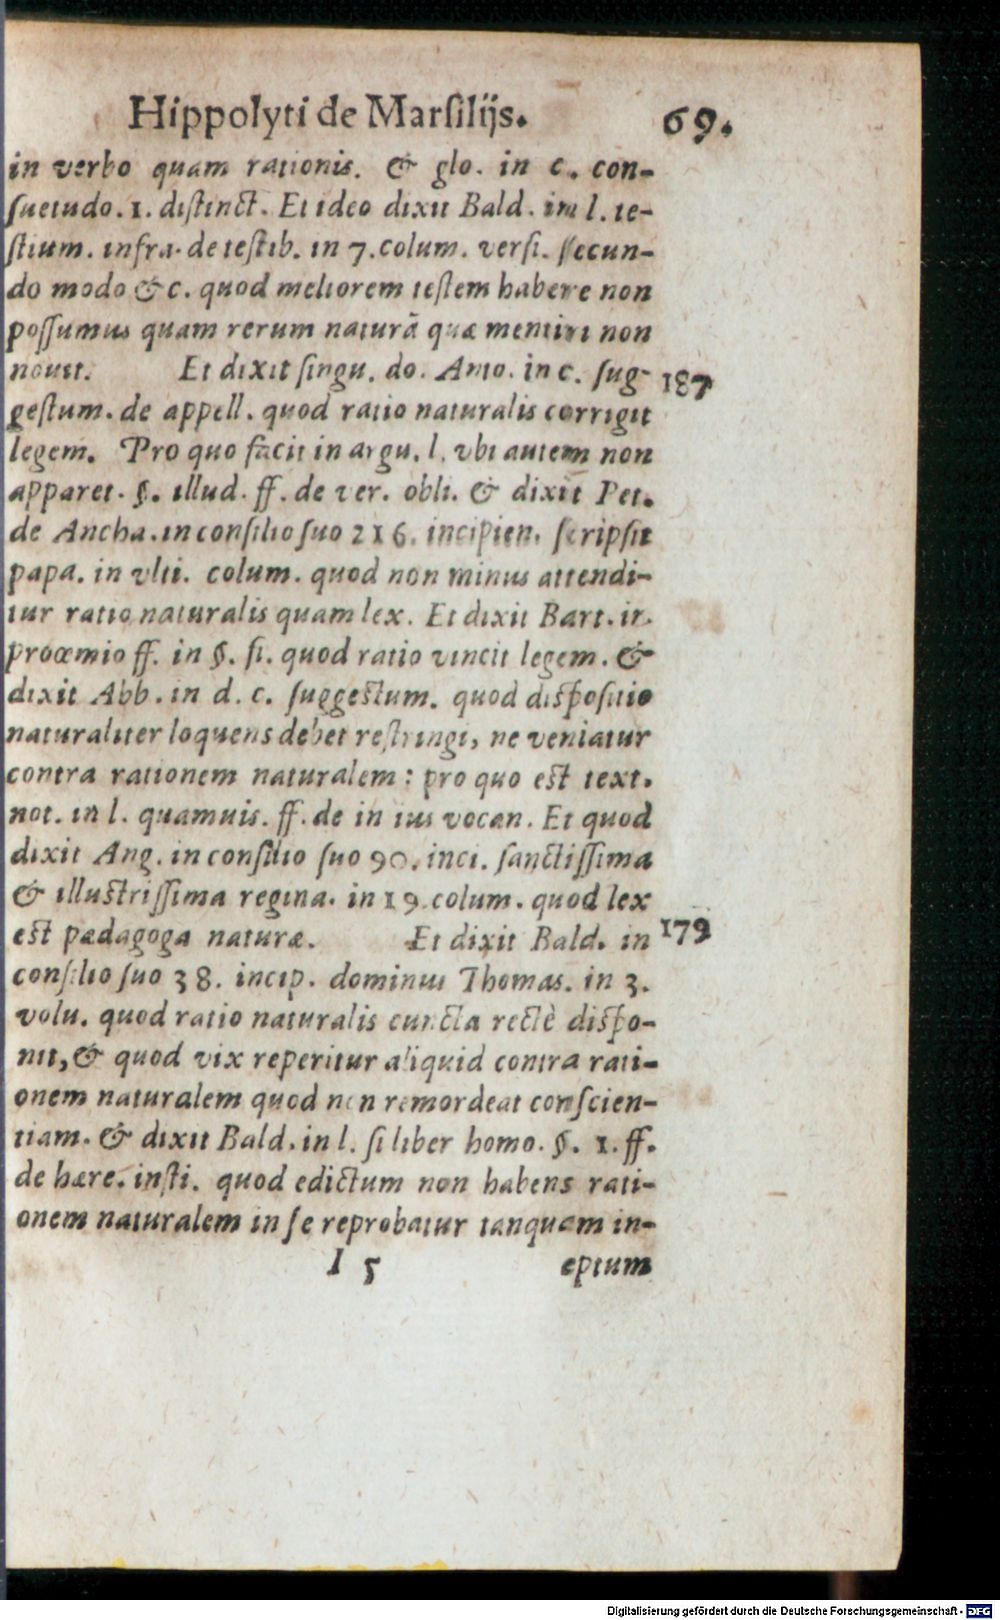 Hippolyti de Marsilijs. 69.
in verbo quam rationis. & glo. in c. con-
suetudo. 1. distinct. Et ideo dixit Bald. in l. te-
stium. infra. de testib. in 7. colum. versi. secun-
do modo &c. quod meliorem testem habere non
possumus quam rerum naturã quæ mentiri non
nouit. Et dixit singu. do. Anto. in c. sug- 187
gestum. de appell. quod ratio naturalis corrigit
legem. Pro quo facit in argu. l. vbi autem non
apparet. §. illud. ff. de ver. obli. & dixit Pet.
de Ancha. in consilio suo 216. incipien. scripsit
papa. in vlti. colum. quod non minus attendi-
tur ratio naturalis quam lex. Et dixit Bart. in
proœmio ff. in §. si. quod ratio vincit legem. &
dixit Abb. in d. c. suggestum. quod dispositio
naturaliter loquens debet restringi, ne veniatur
contra rationem naturalem: pro quo est text.
not. in l. quamuis. ff. de in ius vocan. Et quod
dixit Ang. in consilio suo 90. inci. sanctissima
& illustrissima regina. in 19. colum. quod lex
est pædagoga naturæ. Et dixit Bald. in 179
consilio suo 38. incip. dominus Thomas. in 3.
volu. quod ratio naturalis cuncta rectè dispo-
nit, & quod vix reperitur aliquid contra rati-
onem naturalem quod non remordeat conscien-
tiam. & dixit Bald. in l. si liber homo. §. 1. ff.
de hære. insti. quod edictum non habens rati-
onem naturalem in se reprobatur tanquam in-
I 5 eptum
Digitalisierung gefördert durch die Deutsche Forschungsgemeinschaft - DFG